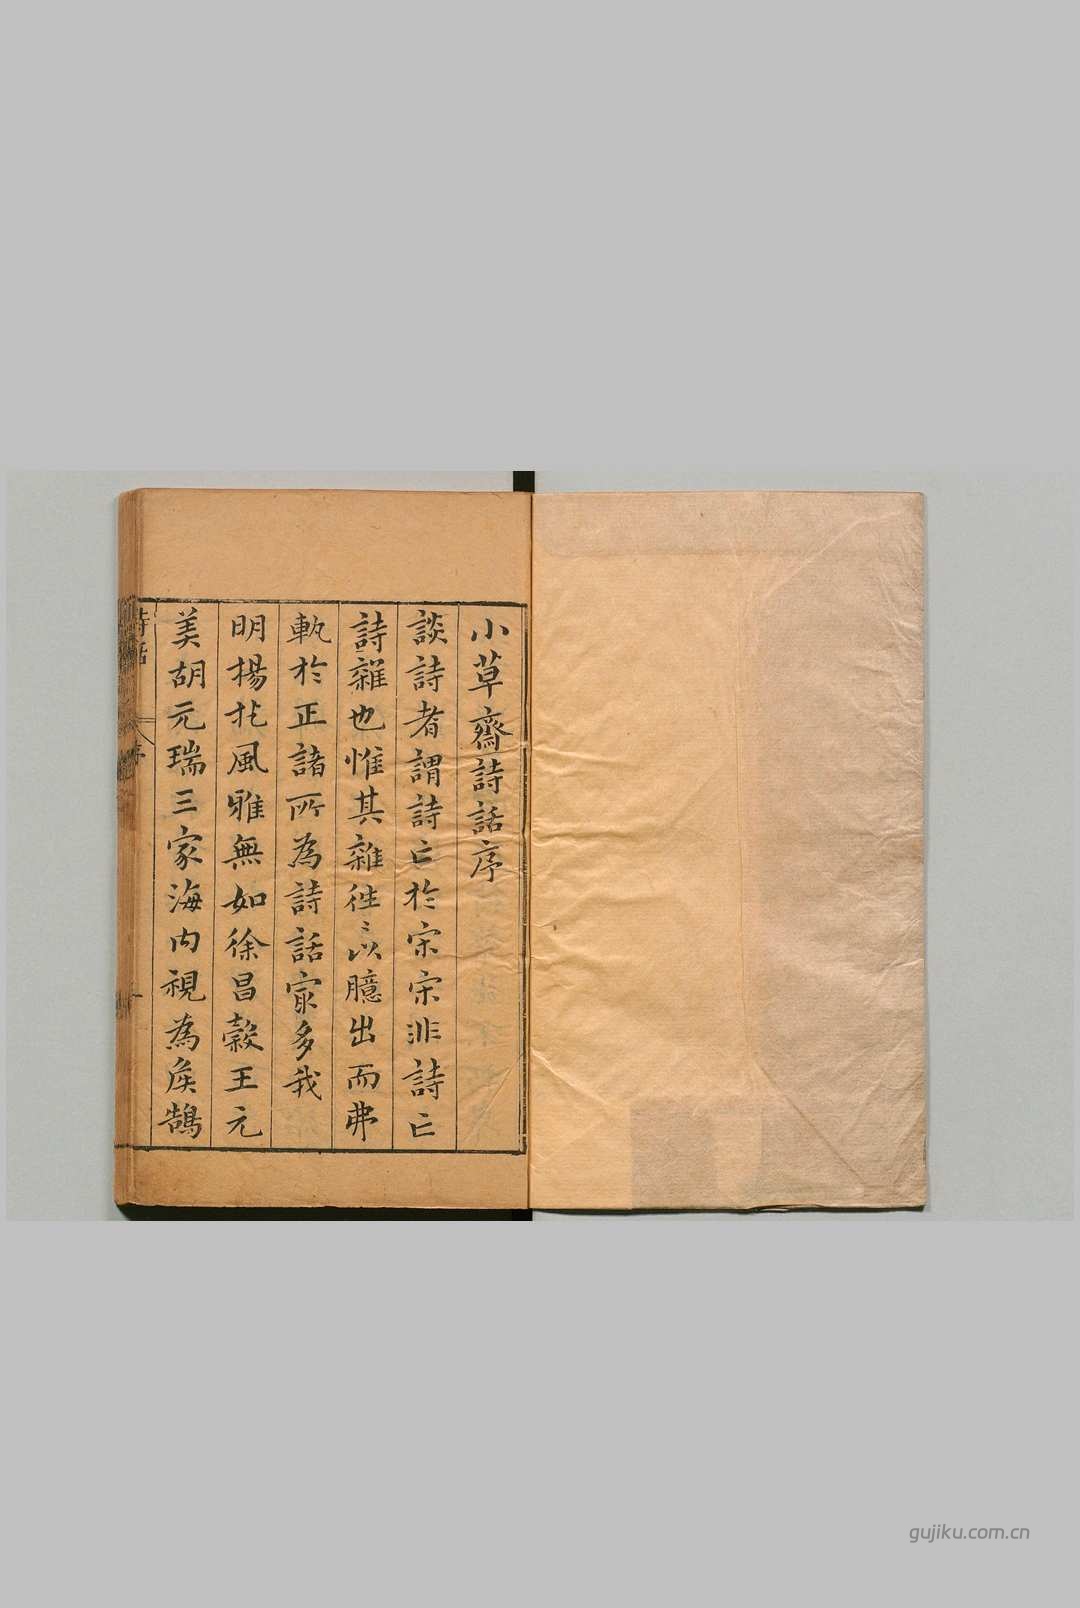 小草齋詩話序
談詩者謂詩亡於宋宋非詩亡
詩雜也惟其雜徃〻以臆出而弗
軌於正諸所為詩話家多我
明揚扢風雅無如徐昌榖王元
美胡元瑞三家海内視為矦鵠
詩話
序
一
gujiku.com.cn